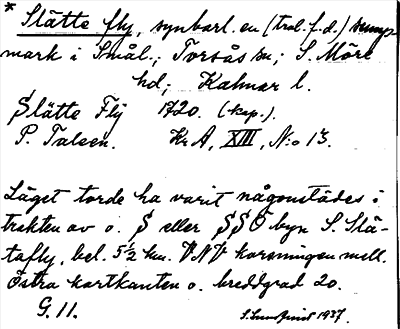 * Slätte fly, synbarl. en (trol. f.d.) sump
mark i Smål.; Torsås sn; S. Möre
hd; Kalmar l.
Slätte Flÿ 1720. (kap.).
P. Talsen. KrA, XIII, N:o 13.
Läget torde ha varit någonstädes i
trakten av o. S eller SSO byn S. Slä-
tafly, bel. 5½ km. VNV korsningen mell.
östra kartkanten o. breddgrad 20.
G. 11.
1937.